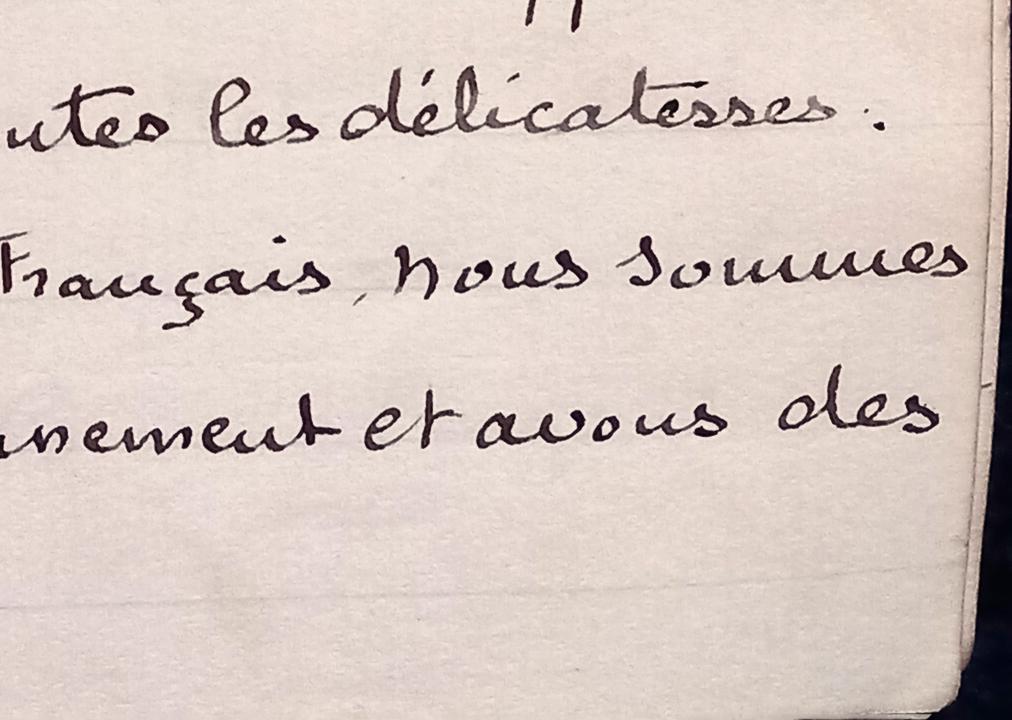 utes les délicatesses.
Français, nous sommes
nement et avons des